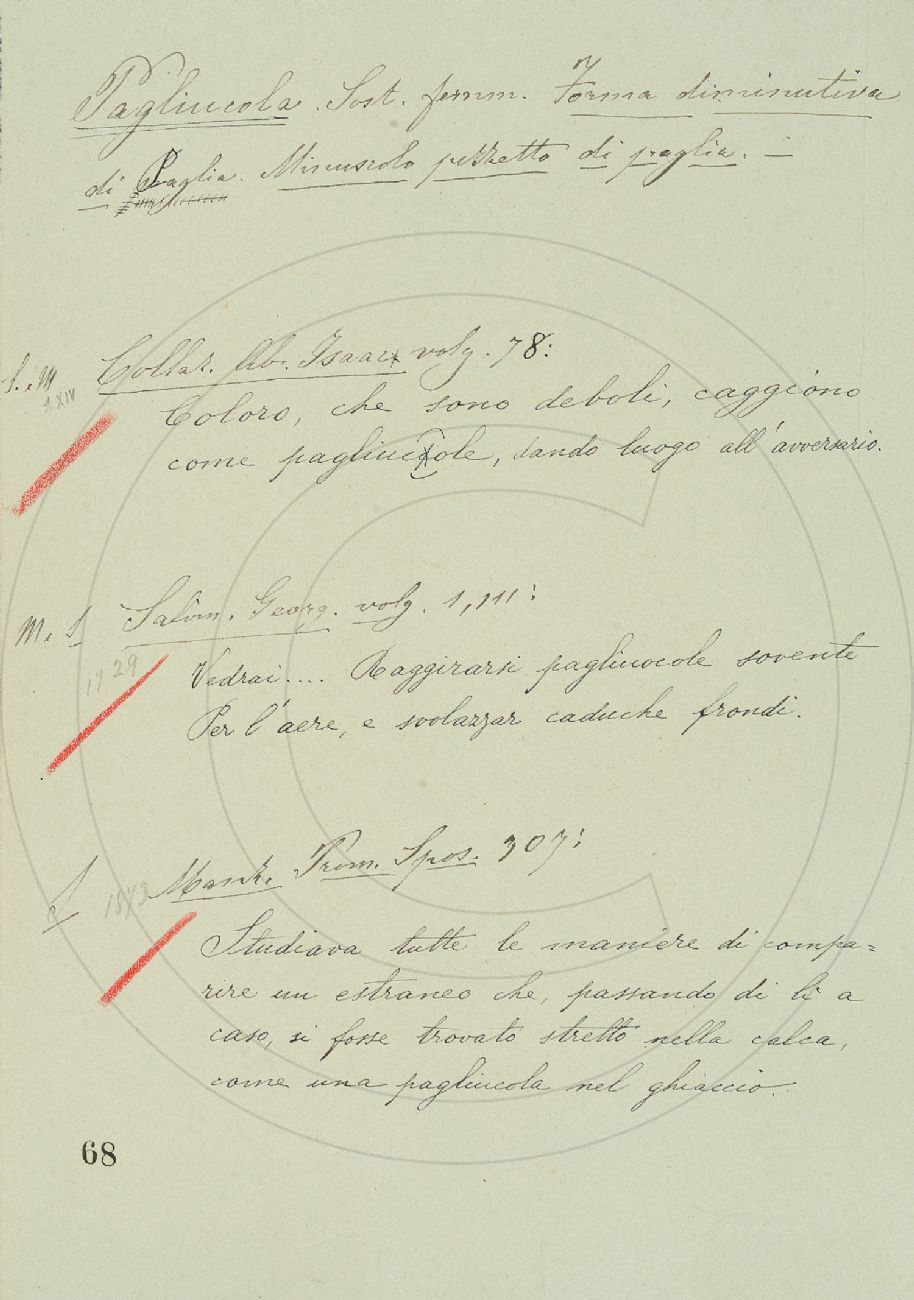 Pagliucola. Sost. femm. Forma diminutiva
di Paglia. Minuscolo pezzetto di paglia. –
S. M
s. XIV
Collaz. Ab. Isaac volg. 78:
Coloro, che sono deboli, caggiono
come pagliucole, dando luogo all'avversario.
M. S
Salvin. Georg. volg. 1, 111:
Vedrai.... Raggirarsi pagliucole sovente
Per l'aere, e svolazzar caduche frondi.
S
Manz. Prom. Spos. 307:
Studiava tutte le maniere di compa=
rire un estraneo che, passando di lì a
caso, si fosse trovato stretto nella calca,
come una pagliucola nel ghiaccio.
68